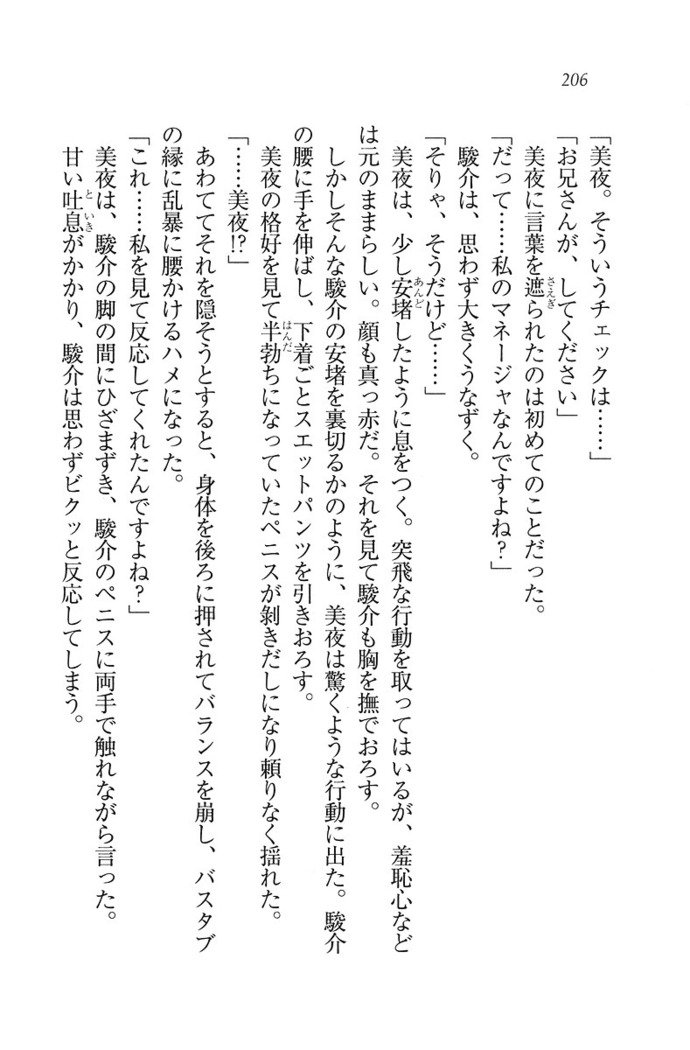 206
「美夜。そういうチェックは……」
「お兄さんが、してください」
美夜に言葉を遮られたのは初めてのことだった。
「だって……私のマネージャなんですよね？」
駿介は、思わず大きくうなずく。
「そりゃ、そうだけど……」
美夜は、少し安堵したように息をつく。突飛な行動を取ってはいるが、羞恥心など
は元のままらしい。顔も真っ赤だ。それを見て駿介も胸を撫でおろす。
しかしそんな駿介の安堵を裏切るかのように、美夜は驚くような行動に出た。駿介
の腰に手を伸ばし、下着ごとスエットパンツを引きおろす。
美夜の格好を見て半勃ちになっていたペニスが剝きだしになり頼りなく揺れた。
「……美夜!?」
あわててそれを隠そうとすると、身体を後ろに押されてバランスを崩し、バスタブ
の縁に乱暴に腰かけるハメになった。
「これ……私を見て反応してくれたんですよね？」
美夜は、駿介の脚の間にひざまずき、駿介のペニスに両手で触れながら言った。
甘い吐息がかかり、駿介は思わずビクッと反応してしまう。